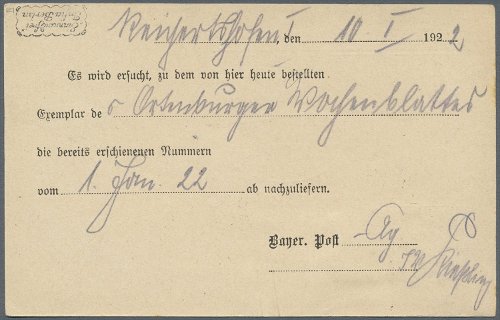 Reichertshofen I, den 10 I 1922
Es wird ersucht, zu dem von hier heute bestellten
Exemplar des Ortenburger Wochenblattes
die bereits erschienenen Nummern
vom 1. Jan. 22 ab nachzuliefern.
Bayer. Post Ag